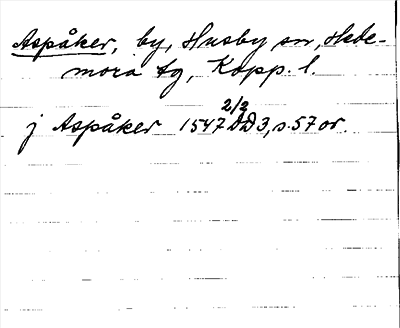 Aspåker, by, Husby sn, Hede-
mora tg, Kopp. l.
2/2
j Aspåker 1547 DD3, s. 57 or.